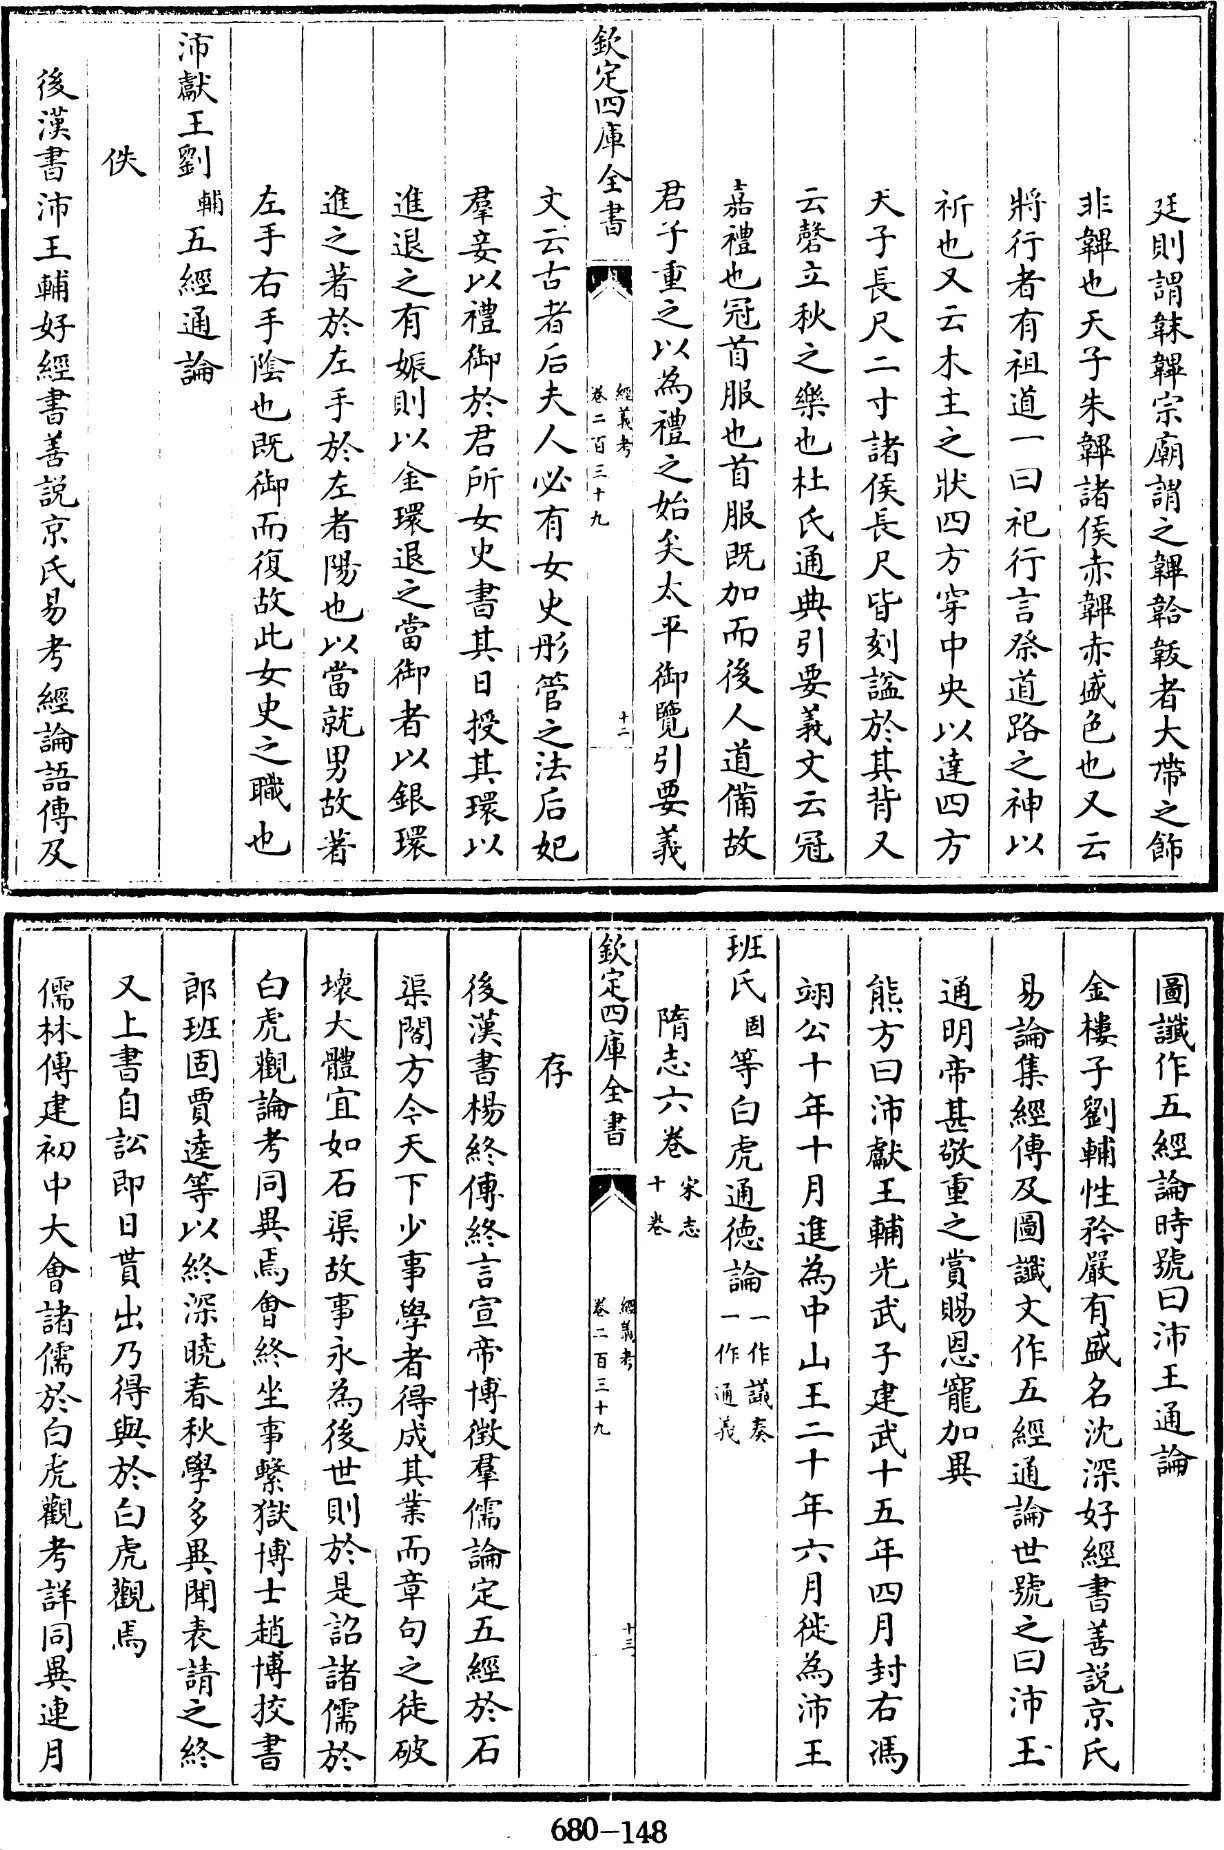 廷則謂韎韠宗廟謂之韠韐韍者大帶之飾
非韠也天子朱韠諸侯赤韠赤盛色也又云
將行者有祖道一曰祀行言祭道路之神以
祈也又云木主之狀四方穿中央以達四方
天子長尺二寸諸侯長尺皆刻諡於其背又
云磬立秋之樂也杜氏通典引要義文云冠
嘉禮也冠首服也首服既加而後人道備故
君子重之以為禮之始矣太平御覽引要義
欽定四庫全書
經義考
卷二百三十九
十二
文云古者后夫人必有女史彤管之法后妃
羣妾以禮御於君所女史書其日授其環以
進退之有娠則以金環退之當御者以銀環
進之著於左手於左者陽也以當就男故著
左手右手陰也既御而復故此女史之職也
沛獻王劉輔五經通論
佚
後漢書沛王輔好經書善説京氏易考經論語傳及
圖讖作五經論時號曰沛王通論
金樓子劉輔性矜嚴有盛名沈深好經書善説京氏
易論集經傳及圖讖文作五經通論世號之曰沛王
通明帝甚敬重之賞賜恩寵加異
熊方曰沛獻王輔光武子建武十五年四月封右馮
翊公十年十月進為中山王二十年六月徙為沛王
班氏固等白虎通德論一作議奏一作通義
隋志六卷宋志十卷
欽定四庫全書
經義考
卷二百三十九
十三
存
後漢書楊終傳終言宣帝博徵羣儒論定五經於石
渠閣方今天下少事學者得成其業而章句之徒破
壞大體宜如石渠故事永為後世則於是詔諸儒於
白虎觀論考同異焉會終坐事繫獄博士趙博挍書
郎班固賈逵等以終深曉春秋學多異聞表請之終
又上書自訟即日貰出乃得與於白虎觀焉
儒林傳建初中大會諸儒於白虎觀考詳同異連月
680-148